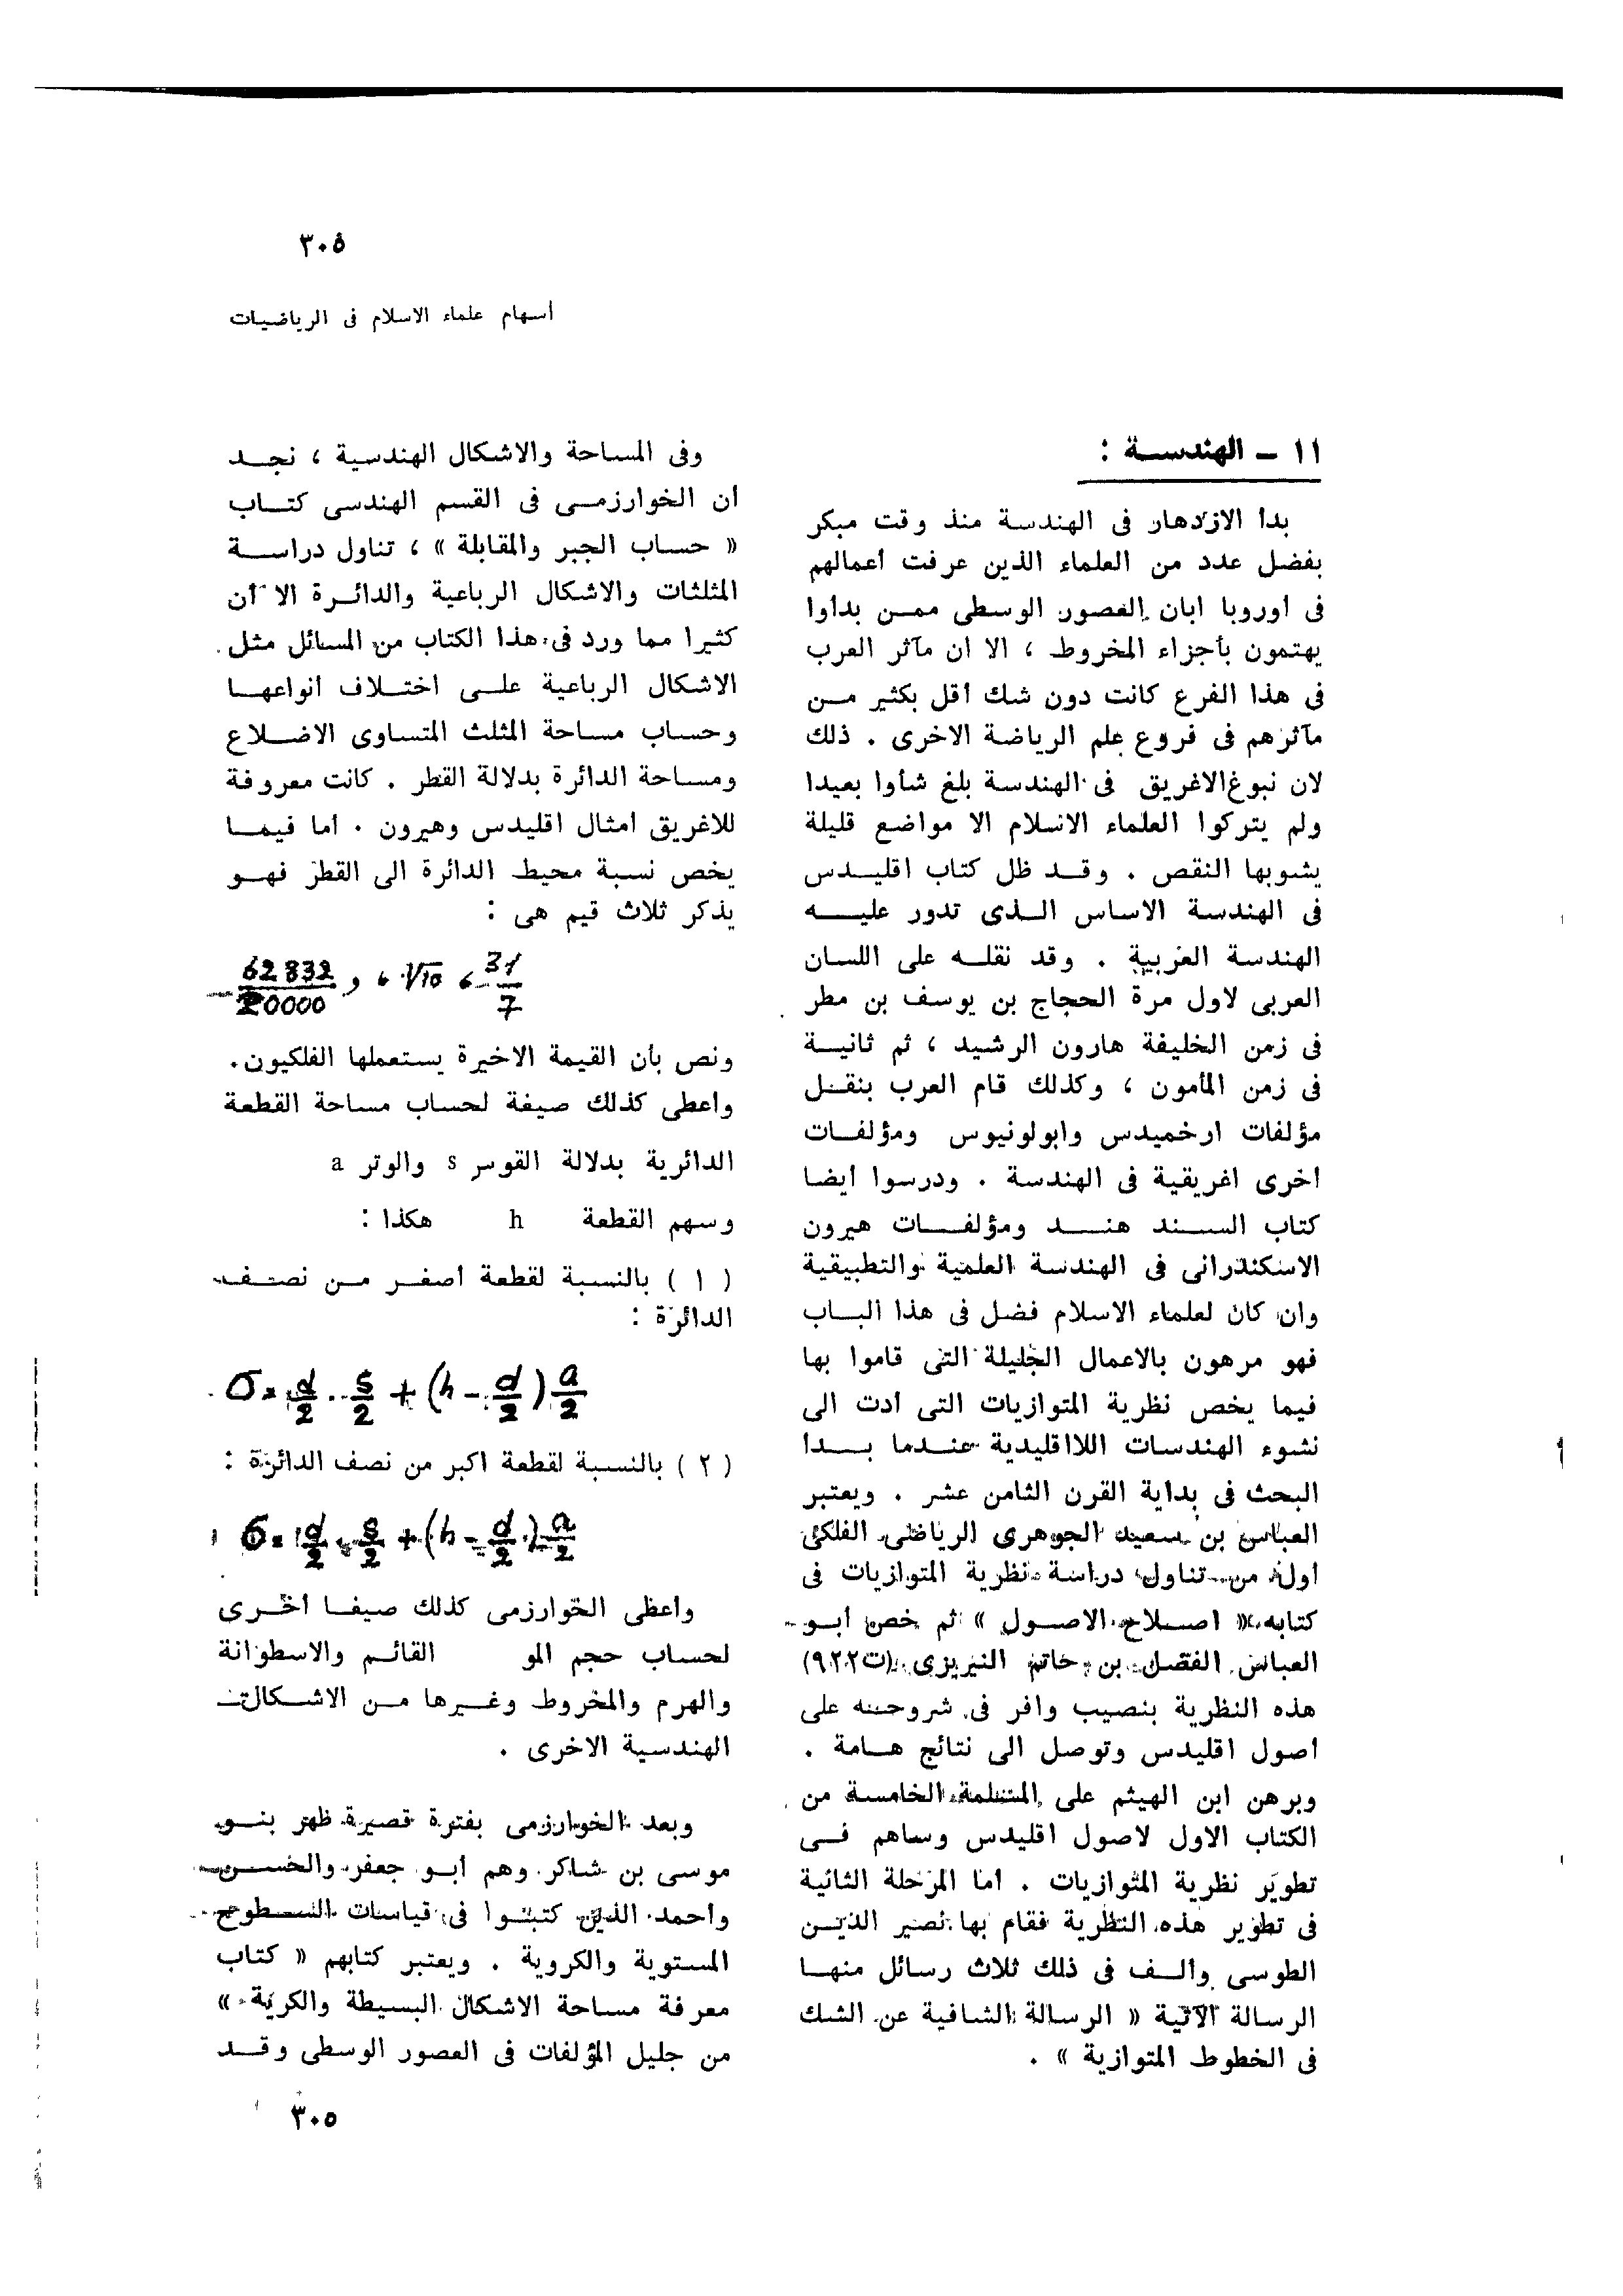 ٣٠٥
أسهام علماء الاسلام فى الرياضيات
١١ – الهندســة :
بدأ الازدهار فى الهندسة منذ وقت مبكر
بفضل عدد من العلماء الذين عرفت أعمالهم
فى أوروبا ابان العصور الوسطى ممـن بدأوا
يهتمون بأجزاء المخروط ، الا ان مآثر العرب
فى هذا الفرع كانت دون شك أقل بكثير مـن
مآثرهم فى فروع علم الرياضة الاخرى . ذلك
لان نبوغ الاغريق فى الهندسة بلغ شأوا بعيدا
ولم يتركوا العلماء الاسلام الا مواضع قليلة
يشوبها النقص . وقـد ظل كتاب اقليـدس
فى الهندسة الاساس الـذى تدور عليــه
الهندسة العربية . وقد نقلـه على اللسان
العربى لاول مرة الحجاج بن يوسف بن مطر
فى زمن الخليفة هارون الرشيد ، ثم ثانيـة
فى زمن المأمون ، وكذلك قام العرب بنقـل
مؤلفات ارخميدس وابولونيوس ومؤلفـات
اخرى اغريقية فى الهندسة . ودرسوا ايضا
كتاب السـند هنـد ومؤلفـات هيرون
الاسكندرانى فى الهندسة العلمية والتطبيقية
وان كان لعلماء الاسلام فضل فى هذا البـاب
فهو مرهون بالاعمال الجليلة التى قاموا بها
فيما يخص نظرية المتوازيات التى أدت الى
نشوء الهندسات اللااقليدية عنـدما بـدأ
البحث فى بداية القرن الثامن عشر . ويعتبر
العباس بن سعيد الجوهرى الرياضى الفلكى
أول من تناول دراسة نظرية المتوازيات فى
كتابه « اصـلاح الاصـول » ثم خص أبـو
العباس الفضل بن حاتم النيريزى (ت٩٢٢)
هذه النظرية بنصيب وافر فى شروحـه على
اصول اقليدس وتوصل الى نتائج هـامة .
وبرهن ابن الهيثم على المسلمة الخامسة من
الكتاب الاول لاصول اقليدس وساهم فـى
تطوير نظرية المتوازيات . أما المرحلة الثانية
فى تطوير هذه النظرية فقام بها نصير الديـن
الطوسى وألـف فى ذلك ثلاث رسائل منهـا
الرسالة الآتية « الرسالة الشافية عن الشك
فى الخطوط المتوازية » .
وفى المساحة والاشكال الهندسية ، نجـد
أن الخوارزمـى فى القسم الهندسى كتـاب
« حساب الجبر والمقابلة » ، تناول دراسـة
المثلثات والاشكال الرباعية والدائـرة الا أن
كثيرا مما ورد فى هذا الكتاب من المسائل مثل
الاشكال الرباعية علـى اختـلاف أنواعهـا
وحساب مساحة المثلث المتساوى الاضـلاع
ومساحة الدائرة بدلالة القطر . كانت معروفة
للاغريق امثال اقليدس وهيرون . أما فيمـا
يخص نسبة محيط الدائرة الى القطر فهـو
يذكر ثلاث قيم هى :
31/7 ، √10 ، و 62832/20000
ونص بأن القيمة الاخيرة يستعملها الفلكيون .
واعطى كذلك صيغة لحساب مساحة القطعة
الدائرية بدلالة القوس s والوتر a
وسهم القطعة h هكذا :
( ١ ) بالنسبة لقطعة اصغـر مـن نصـف
الدائرة :
σ = d/2 . s/2 + (h – d/2) a/2
( ٢ ) بالنسبة لقطعة اكبر من نصف الدائرة :
σ = d/2 . s/2 + (h – d/2) a/2
وأعطى الخوارزمى كذلك صيغـا أخـرى
لحساب حجم المو القائـم والاسطوانة
والهرم والمخروط وغيـرها مـن الاشـكال
الهندسية الاخرى .
وبعد الخوارزمى بفترة قصيرة ظهر بنـو
موسى بن شاكر وهم أبـو جعفر والحسـن
وأحمد الذين كتبـوا فى قياسات السـطوح
المستوية والكروية . ويعتبر كتابهم « كتاب
معرفة مساحة الاشكال البسيطة والكرية »
من جليل المؤلفات فى العصور الوسطى وقـد
٣٠٥